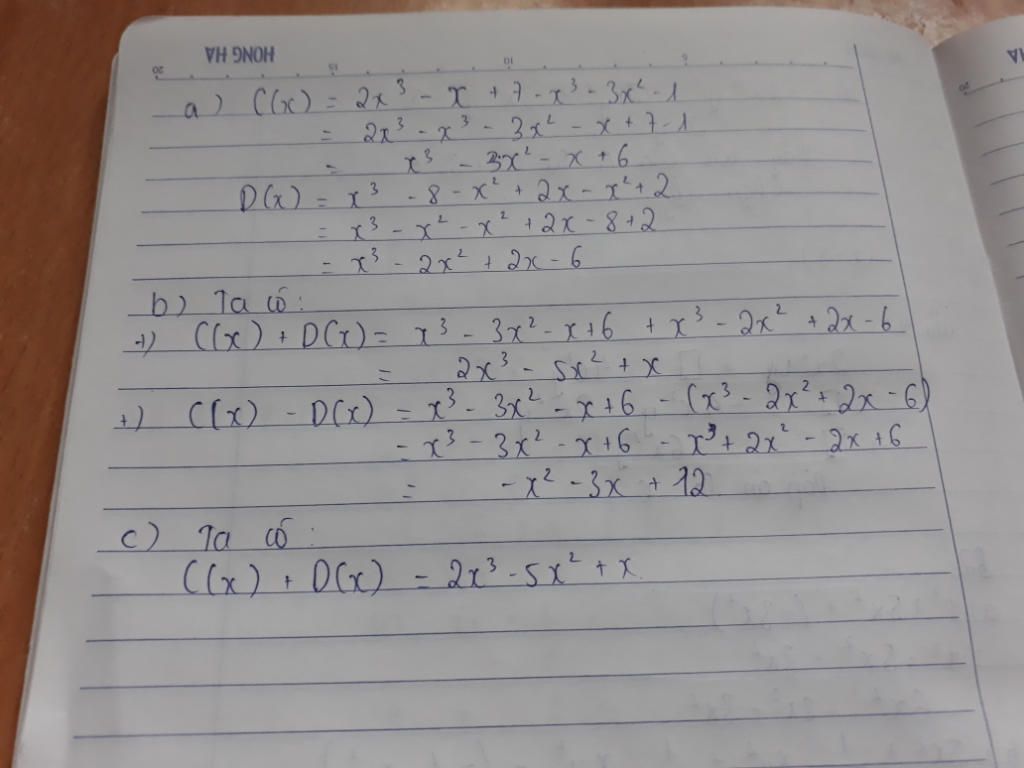 HONG HA
20 15 10 5
a) C(x) = 2x³ - x + 7 - x³ - 3x² - 1
= 2x³ - x³ - 3x² - x + 7 - 1
= x³ - 3x² - x + 6
D(x) = x³ - 8 - x² + 2x - x² + 2
= x³ - x² - x² + 2x - 8 + 2
= x³ - 2x² + 2x - 6
b) Ta có:
+) C(x) + D(x) = x³ - 3x² - x + 6 + x³ - 2x² + 2x - 6
= 2x³ - 5x² + x
+) C(x) - D(x) = x³ - 3x² - x + 6 - (x³ - 2x² + 2x - 6)
= x³ - 3x² - x + 6 - x³ + 2x² - 2x + 6
= -x² - 3x + 12
c) Ta có:
C(x) + D(x) = 2x³ - 5x² + x